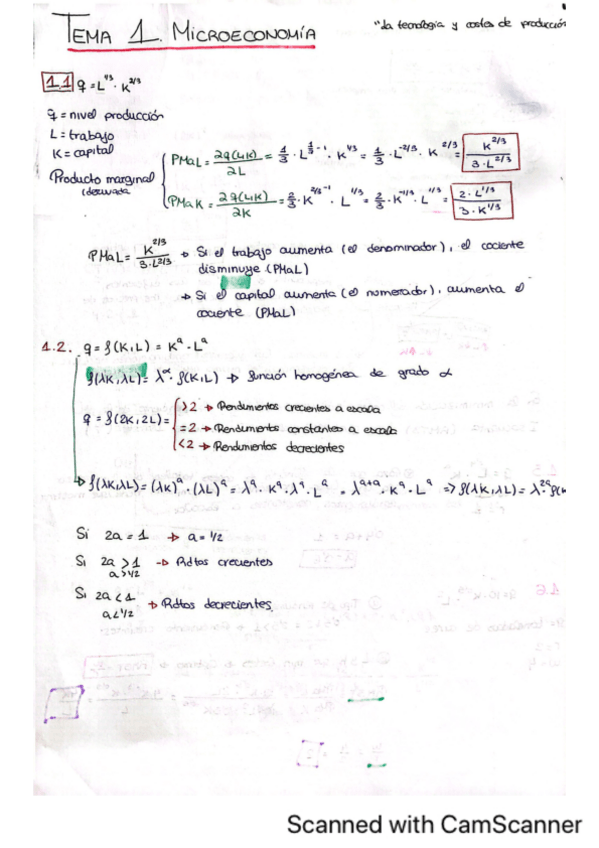 TEMA 1. MICROECONOMÍA
"La tecnología y costes de producción
1.1 q = L^1/3 · K^2/3
q = nivel producción
L = trabajo
K = capital
Producto marginal
(derivada
PMaL = ∂q(L,K)/∂L = 1/3 · L^(1/3 - 1) · K^2/3 = 1/3 · L^-2/3 · K^2/3 = K^2/3 / 3·L^2/3
PMaK = ∂q(L,K)/∂K = 2/3 · K^(2/3 - 1) · L^1/3 = 2/3 · K^-1/3 · L^1/3 = 2·L^1/3 / 3·K^1/3
PMaL = K^2/3 / 3·L^2/3 → Si el trabajo aumenta (el denominador), el cociente
disminuye (PMaL)
→ Si el capital aumenta (el numerador), aumenta el
cociente (PMaL)
1.2. q = f(K,L) = K^a · L^a
f(λK,λL) = λ^α · f(K,L) → función homogénea de grado α
q = f(2K,2L) =
>2 → Rendimientos crecientes a escala
=2 → Rendimientos constantes a escala
<2 → Rendimientos decrecientes
→ f(λK,λL) = (λK)^a · (λL)^a = λ^a · K^a · λ^a · L^a = λ^a+a · K^a · L^a ⇒ f(λK,λL) = λ^2a · f(K
Si 2a = 1 → a = 1/2
Si 2a > 1 → Rdtos crecientes
a > 1/2
Si 2a < 1 → Rdtos decrecientes
a < 1/2
Scanned with CamScanner